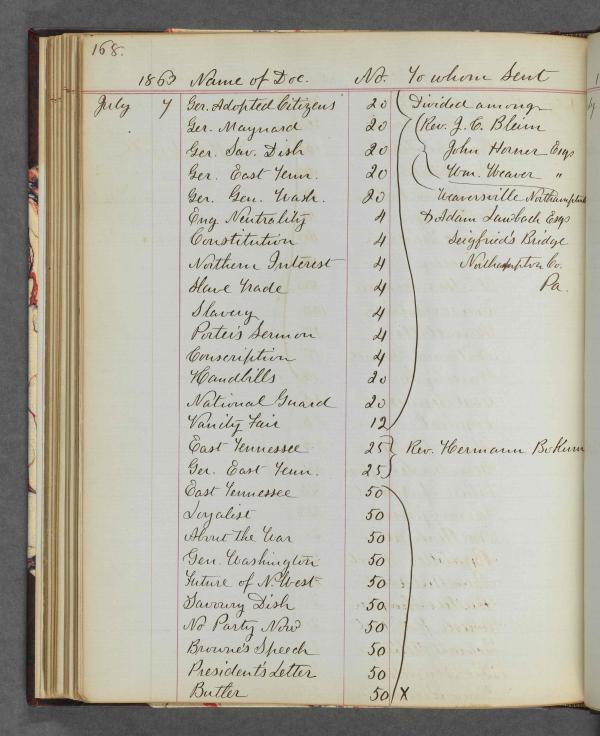 168.
1863 Name of Doc. No. To whom Sent
July 7 Ger. Adopted Citizens 20 Divided among
Ger. Maynard 20 Rev. J. C. Bleim
Ger. Sav. Dish 20 John Horner Esqs
Ger. East Tenn. 20 Wm. Weaver "
Ger. Gen. Wash. 20 Weaversville Northampton
Eng. Neutrality 4 & Adam Laubach Esqs
Constitution 4 Seigfried's Bridge
Northern Interest 4 Northampton Co.
Slave Trade 4 Pa.
Slavery 4
Porter's Sermon 4
Conscription 4
Handbills 20
National Guard 20
Vanity Fair 12
East Tennessee 25 Rev. Hermann Bokum
Ger. East Tenn. 25
East Tennessee 50
Loyalist 50
About the War 50
Gen. Washington 50
Future of N. West 50
Savoury Dish 50
No Party Now 50
Browne's Speech 50
President's Letter 50
Butler 50 X